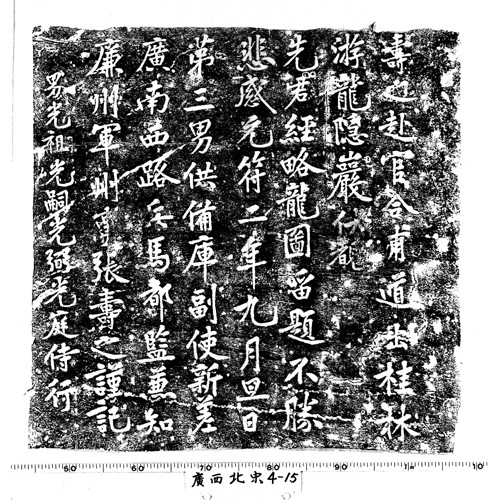 壽之赴官合甫道出桂林
游龍隱巖伏覩
先君經略龍圖留題不勝
悲感元符二年九月旦日
第三男供備庫副使新差
廣南西路兵馬都監兼知
廉州軍州事張壽之謹記
男光祖光嗣光弼光庭侍行
50 60 70 80 90 10
廣西北宋4-15